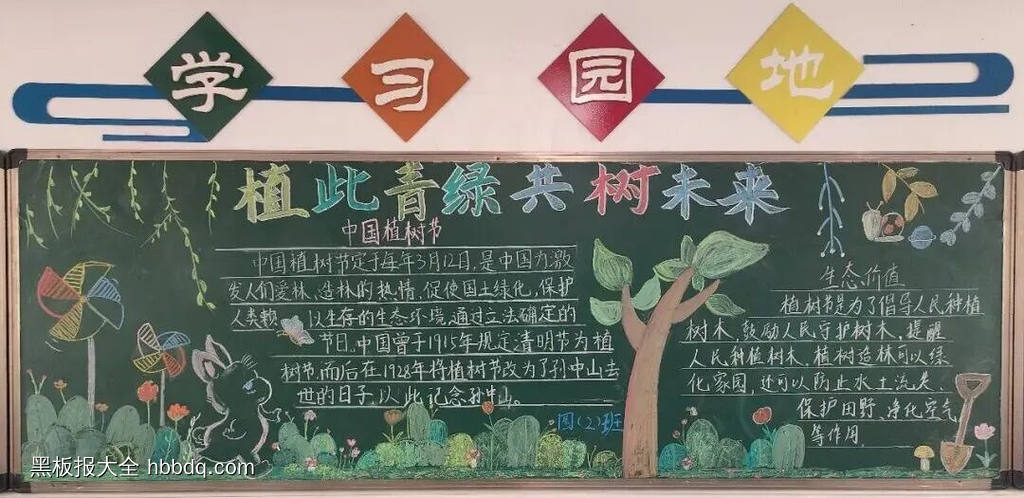 学习园地
植此青绿共树未来
中国植树节
中国植树节定于每年3月12日,是中国为激
发人们爱林、造林的热情,促使国土绿化,保护
人类赖以生存的生态环境,通过立法确定的
节日。中国曾于1915年规定清明节为植
树节,而后在1928年将植树节改为了孙中山去
世的日子,以此记念孙中山。
四(2)班
生态价值
植树节是为了倡导人民种植
树木,鼓励人民守护树木,提醒
人民种植树木,植树造林可以绿
化家园,还可以防止水土流失、
保护田野、净化空气
等作用
黑板报大全 hbbdq.com